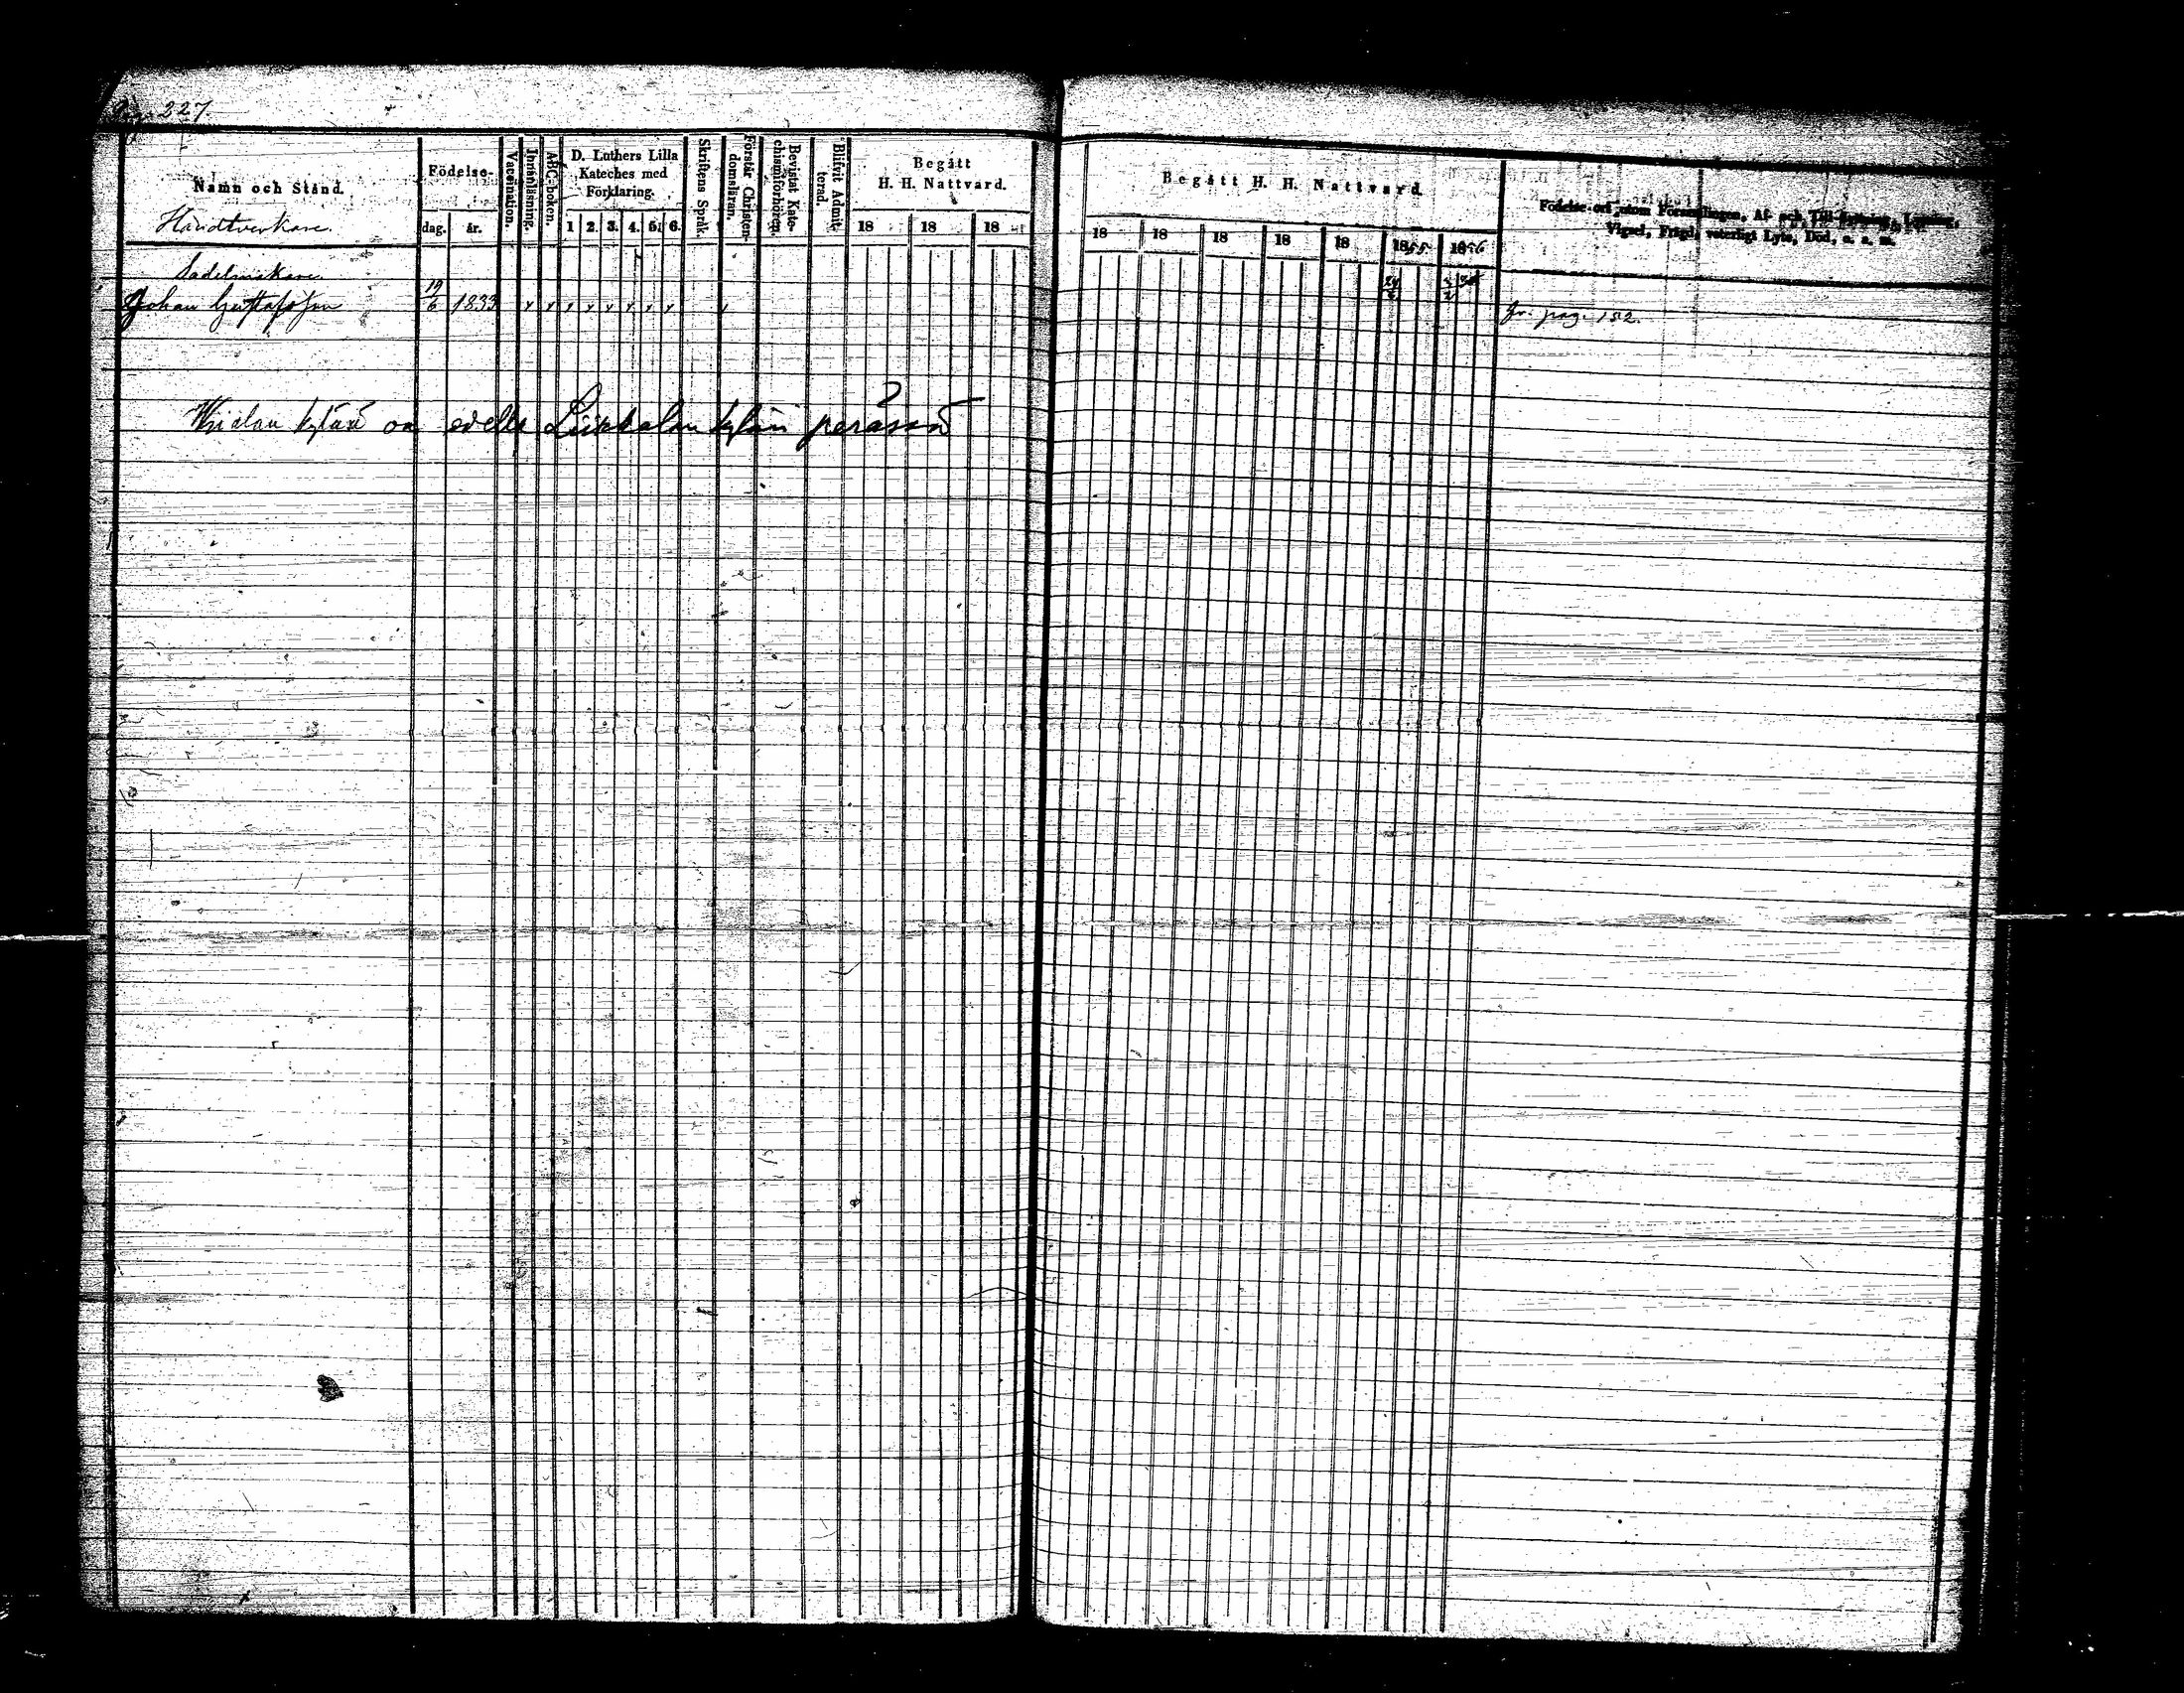 Pag. 227.
Namn och Stånd.
Födelse-
dag. år.
Vaccination.
Innanläsning.
ABC-boken.
D. Luthers Lilla
Kateches med
Förklaring.
1 2. 3. 4. 5. 6.
Skriftens Språk.
Förstår Christen-
domsläran.
Bevistat Kate-
chismiförhören.
Blifvit Admit-
terad.
Begått
H. H. Nattvard.
18 18 18
Begått H. H. Nattvard.
18 18 18 18 18 1855 1856
Födelse-ort utom Församlingen, Af- och Till-flyttning, Lysning,
Vigsel, Frägd, veterligt Lyte, Död, o. s. m.
Handtverkare.
Sadelmakare
Johan Gustafsson 19/6 1833 fr. pag. 152.
kylän on edellä Liikkalan kylän perässä